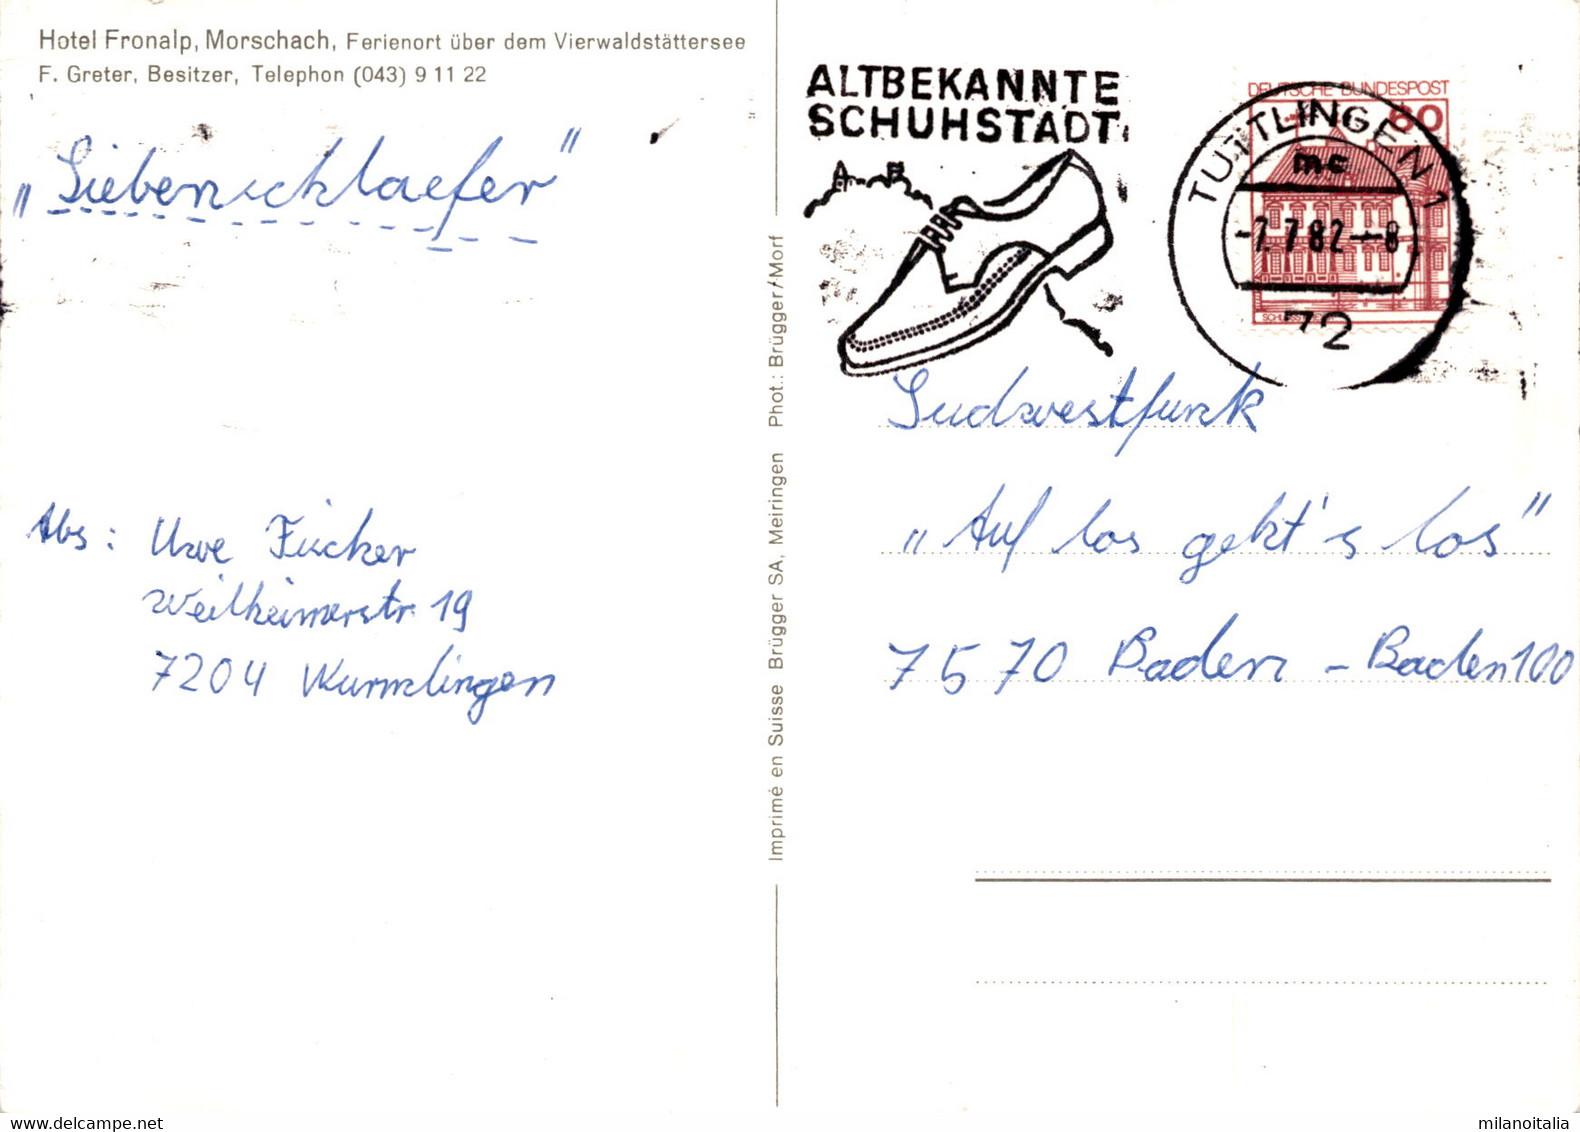 Hotel Fronalp, Morschach, Ferienort über dem Vierwaldstättersee
F. Greter, Besitzer, Telephon (043) 9 11 22
„Siebenschlaefer"
Abs: Uwe Fücker
Weilheimerstr. 19
7204 Wurmlingen
Imprimé en Suisse Brügger SA, Meiringen Phot.: Brügger/Morf
ALTBEKANNTE
SCHUHSTADT
DEUTSCHE BUNDESPOST
60
TUTTLINGEN 1
mc
-7.7.82--8
72
Sudwestfunk
„Auf los geht's los"
7570 Baden-Baden 100
milanoitalia